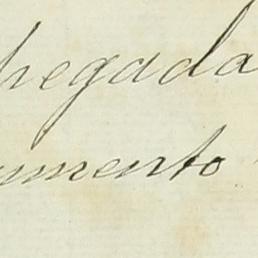 hegada
umento